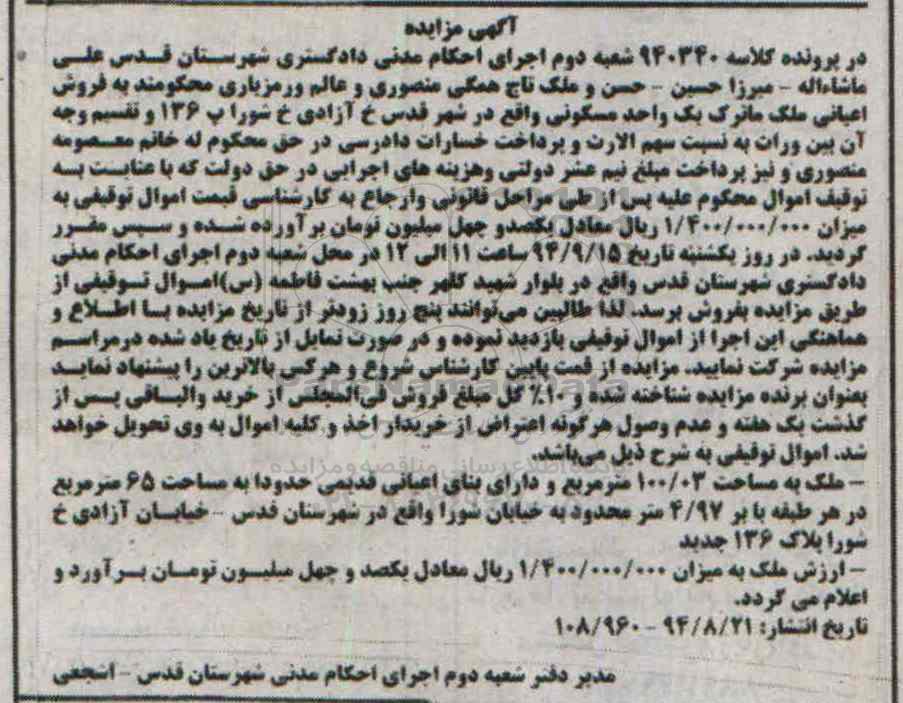 آگهی مزایده
در پرونده کلاسه ۹۴۰۳۴۰ شعبه دوم اجرای احکام مدنی دادگستری شهرستان قدس علی
ماشاءاله - میرزا حسین - حسن و ملک تاج همگی منصوری و عالم ورمزیاری محکومند به فروش
اعیانی ملک ماترک یک واحد مسکونی واقع در شهر قدس خ آزادی خ شورا پ ۱۳۶ و تقسیم وجه
آن بین وراث به نسبت سهم الارث و پرداخت خسارات دادرسی در حق محکوم له خانم معصومه
منصوری و نیز پرداخت مبلغ نیم عشر دولتی وهزینه های اجرایی در حق دولت که با عنایت به
توقیف اموال محکوم علیه پس از طی مراحل قانونی وارجاع به کارشناسی قیمت اموال توقیفی به
میزان ۱/۴۰۰/۰۰۰/۰۰۰ ریال معادل یکصدو چهل میلیون تومان برآورده شده و سپس مقرر
گردید. در روز یکشنبه تاریخ ۹۴/۹/۱۵ ساعت ۱۱ الی ۱۲ در محل شعبه دوم اجرای احکام مدنی
دادگستری شهرستان قدس واقع در بلوار شهید کلهر جنب بهشت فاطمه (س)اموال توقیفی از
طریق مزایده بفروش برسد. لذا طالبین می‌توانند پنج روز زودتر از تاریخ مزایده با اطلاع و
هماهنگی این اجرا از اموال توقیفی بازدید نموده و در صورت تمایل از تاریخ یاد شده درمراسم
مزایده شرکت نمایید. مزایده از قمت پایین کارشناس شروع و هرکس بالاترین را پیشنهاد نماید
بعنوان برنده مزایده شناخته شده و ۱۰٪ کل مبلغ فروش فی‌المجلس از خرید والباقی پس از
گذشت یک هفته و عدم وصول هرگونه اعتراض از خریدار اخذ و کلیه اموال به وی تحویل خواهد
شد. اموال توقیفی به شرح ذیل می‌باشد.
- ملک به مساحت ۱۰۰/۰۳ مترمربع و دارای بنای اعیانی قدیمی حدودا به مساحت ۶۵ مترمربع
در هر طبقه با بر ۴/۹۷ متر محدود به خیابان شورا واقع در شهرستان قدس - خیابان آزادی خ
شورا پلاک ۱۳۶ جدید
- ارزش ملک به میزان ۱/۴۰۰/۰۰۰/۰۰۰ ریال معادل یکصد و چهل میلیون تومان برآورد و
اعلام می گردد.
تاریخ انتشار: ۹۴/۸/۲۱ - ۱۰۸/۹۶۰
مدیر دفتر شعبه دوم اجرای احکام مدنی شهرستان قدس - اشجعی
ParsNamadData